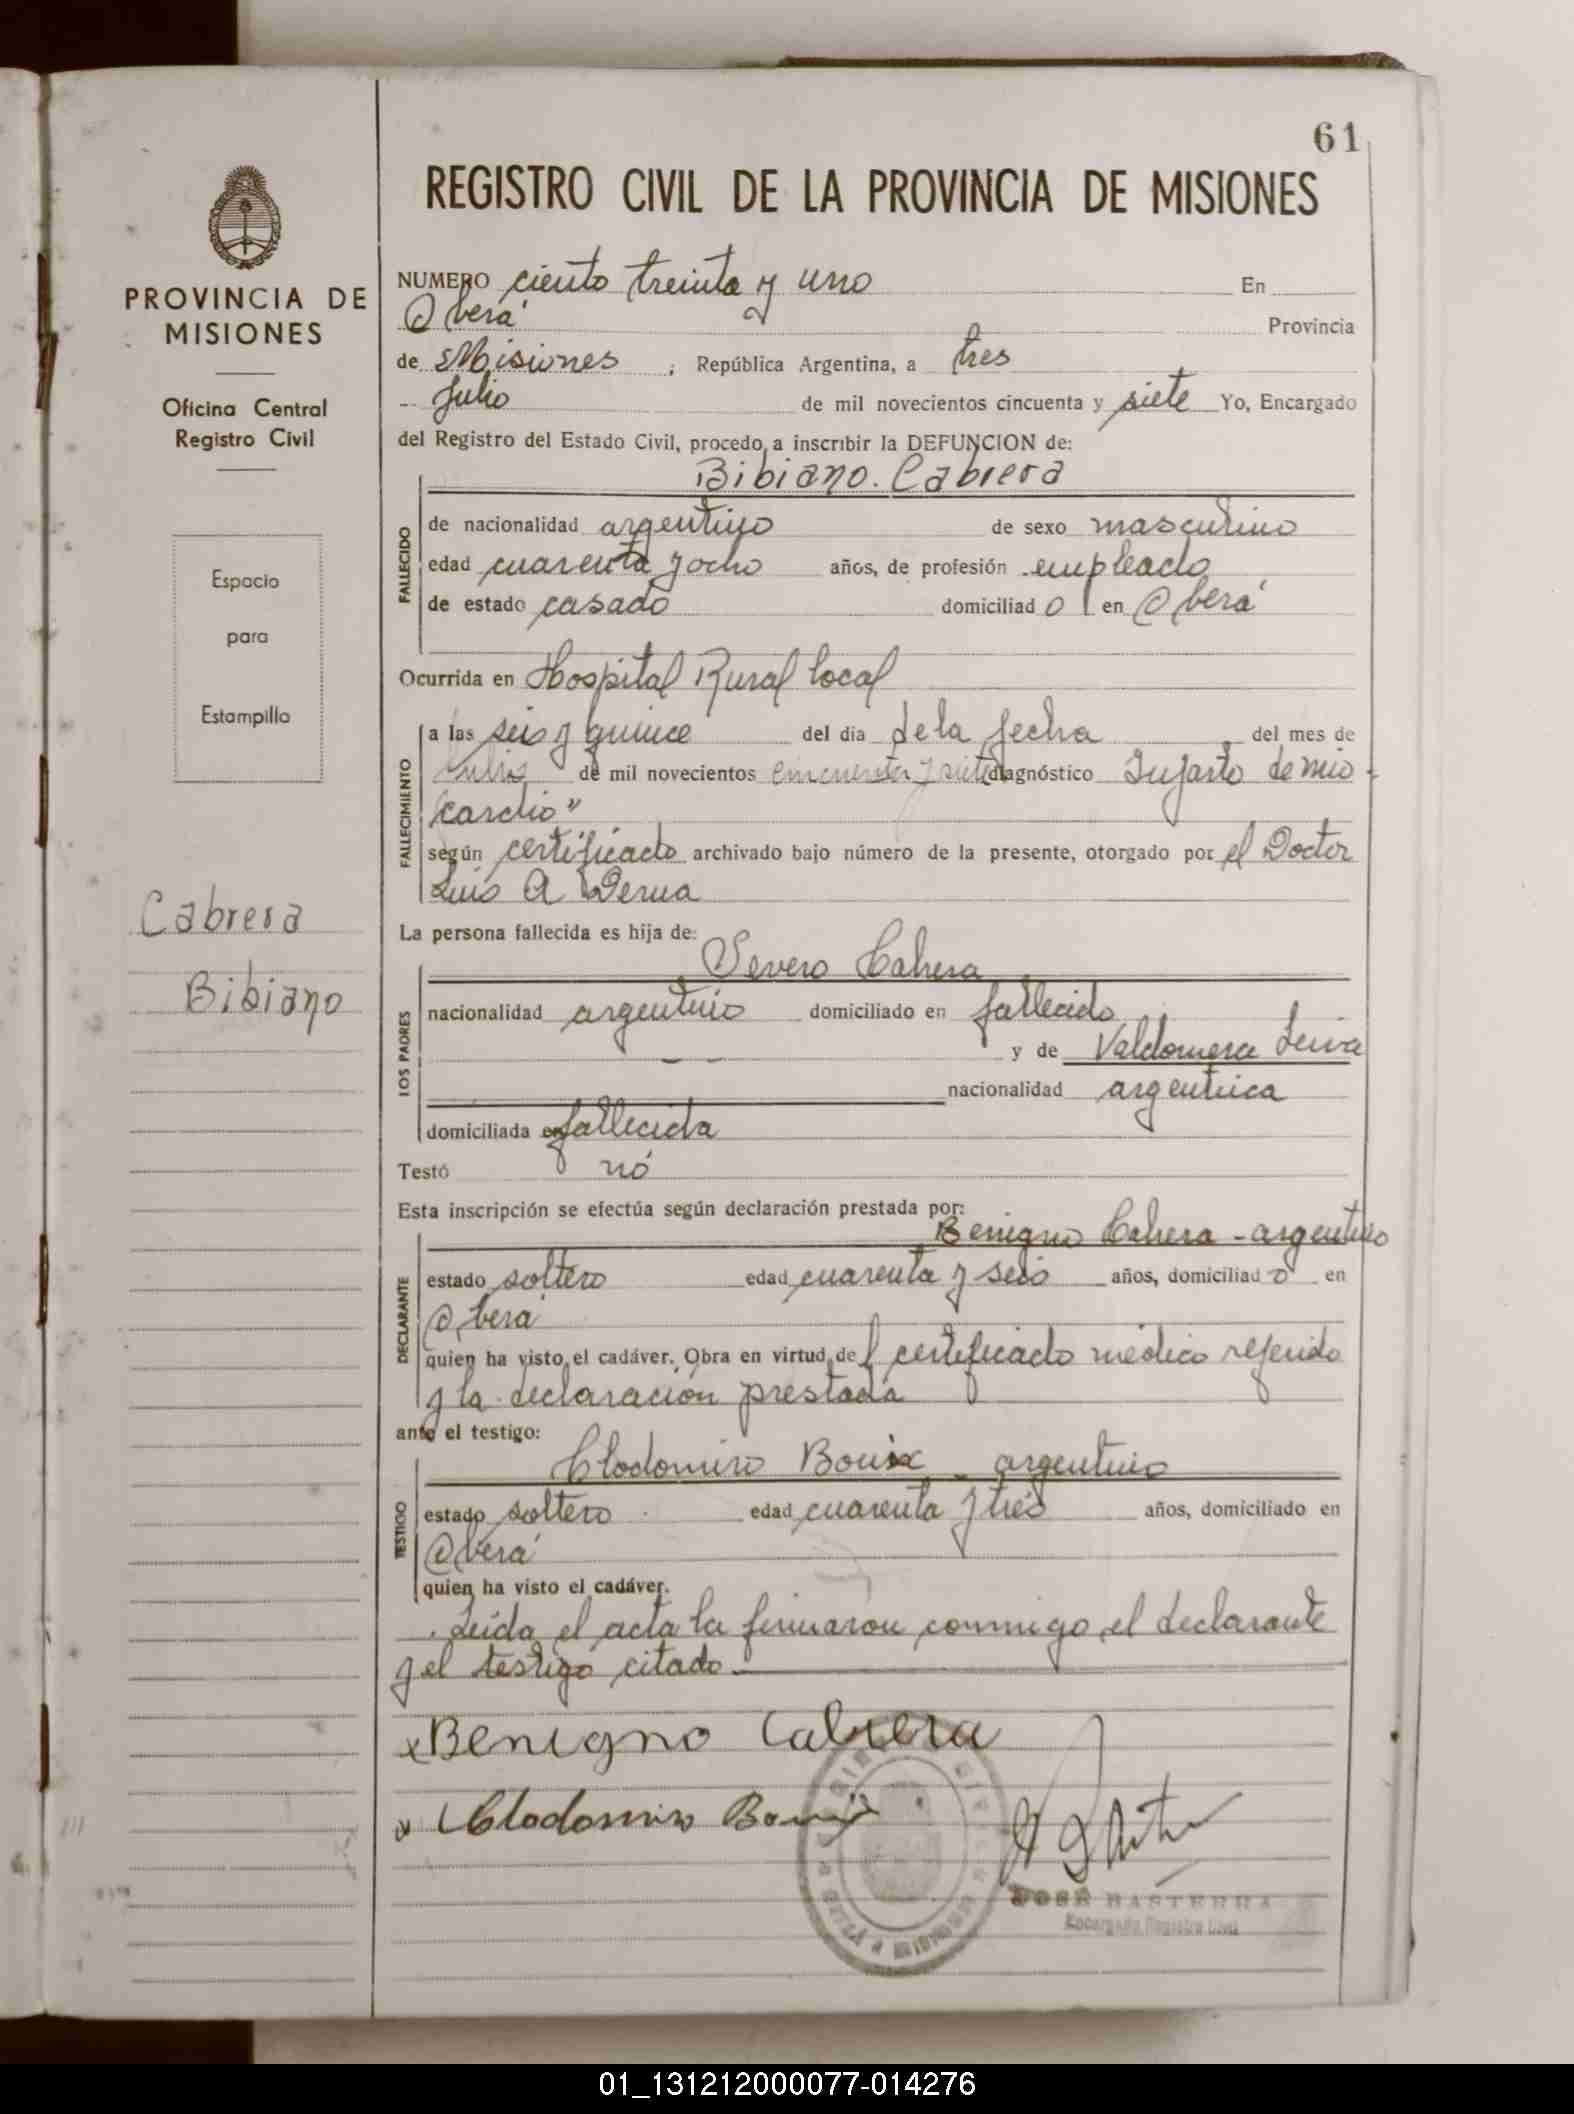 61
REGISTRO CIVIL DE LA PROVINCIA DE MISIONES
PROVINCIA DE
MISIONES
Oficina Central
Registro Civil
Espacio
para
Estampilla
Cabrera
Bibiano
NUMERO ciento treinta y uno En
Oberá Provincia
de Misiones ; República Argentina, a tres
Julio de mil novecientos cincuenta y siete Yo, Encargado
del Registro del Estado Civil, procedo a inscribir la DEFUNCION de:
Bibiano. Cabrera
FALLECIDO
de nacionalidad argentino de sexo masculino
edad cuarenta y ocho años, de profesión empleado
de estado casado domiciliad o en Oberá
Ocurrida en Hospital Rural local
FALLECIMIENTO
a las seis y quince del dia de la fecha del mes de
julio de mil novecientos cincuenta y siete diagnóstico Infarto de mio
cardio"
según certificado archivado bajo número de la presente, otorgado por el Doctor
Luis A
La persona fallecida es hija de:
Severo Cabrera
LOS PADRES
nacionalidad argentino domiciliado en fallecido
y de Valdomera Leiva
nacionalidad argentina
domiciliada en fallecida
Testó nó
Esta inscripción se efectúa según declaración prestada por:
Benigno Cabrera - argentino
DECLARANTE
estado soltero edad cuarenta y seis años, domiciliad o en
Oberá
quien ha visto el cadáver. Obra en virtud de l certificado médico referido
y la declaración prestada
ante el testigo:
Clodomiro argentino
TESTIGO
estado soltero edad cuarenta y tres años, domiciliado en
Oberá
quien ha visto el cadáver.
Leida el acta la firmaron conmigo el declarante
y el testigo citado
x Benigno Cabrera
x Clodomiro
JOSÉ BASTERRA
Encargado Registro Civil
01_131212000077-014276